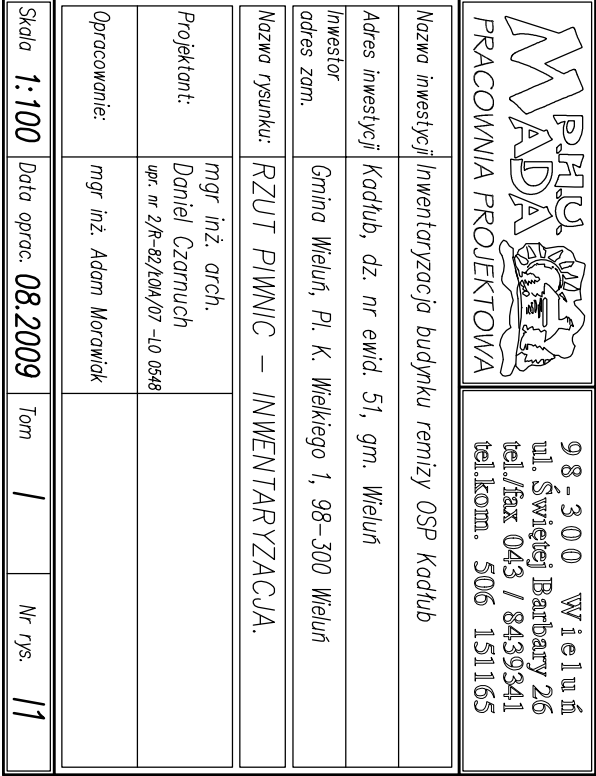 P.H.U.
MADA
PRACOWNIA PROJEKTOWA
98-300 Wieluń
ul. Świętej Barbary 26
tel./fax 043 / 8439341
tel.kom. 506 151165
Nazwa inwestycji Inwentaryzacja budynku remizy OSP Kadłub
Adres inwestycji Kadłub, dz. nr ewid. 51, gm. Wieluń
Inwestor
adres zam.
Gmina Wieluń, Pl. K. Wielkiego 1, 98-300 Wieluń
Nazwa rysunku: RZUT PIWNIC - INWENTARYZACJA.
Projektant:
mgr inż. arch.
Daniel Czarnuch
upr. nr 2/R-82/ŁOIA/07 -LO 0548
Opracowanie: mgr inż. Adam Morawiak
Skala 1:100 Data oprac. 08.2009 Tom I Nr rys. I1